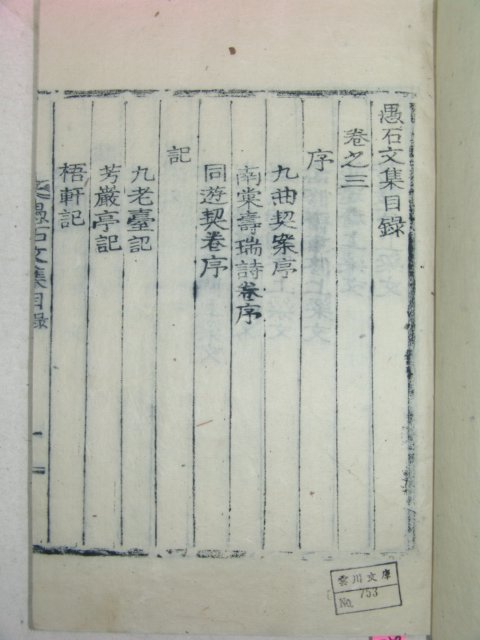 愚石文集目錄
卷之三
序
九曲契案序
南棠壽瑞詩卷序
同遊契卷序
記
九老臺記
芳嚴亭記
梧軒記
愚石文集目錄
雲川文庫
No. 753